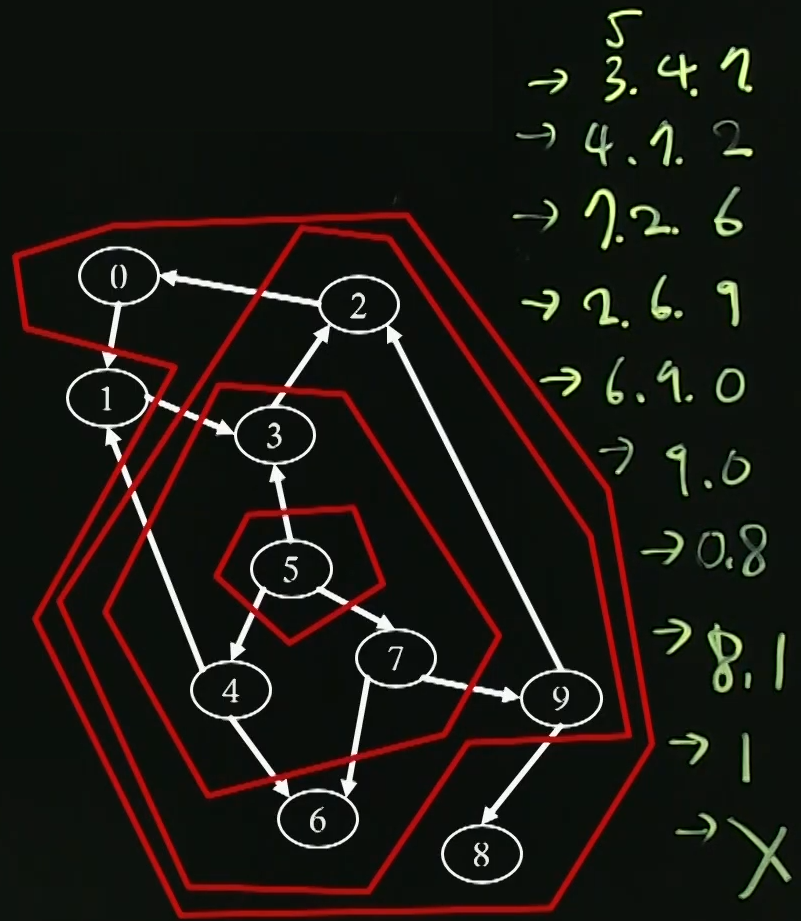 0
2
1
3
5
7
4
9
6
8
5
→ 3. 4. 7
→ 4. 7. 2
→ 7. 2. 6
→ 2. 6. 9
→ 6. 9. 0
→ 9. 0
→ 0.8
→ 8, 1
→ 1
→ X